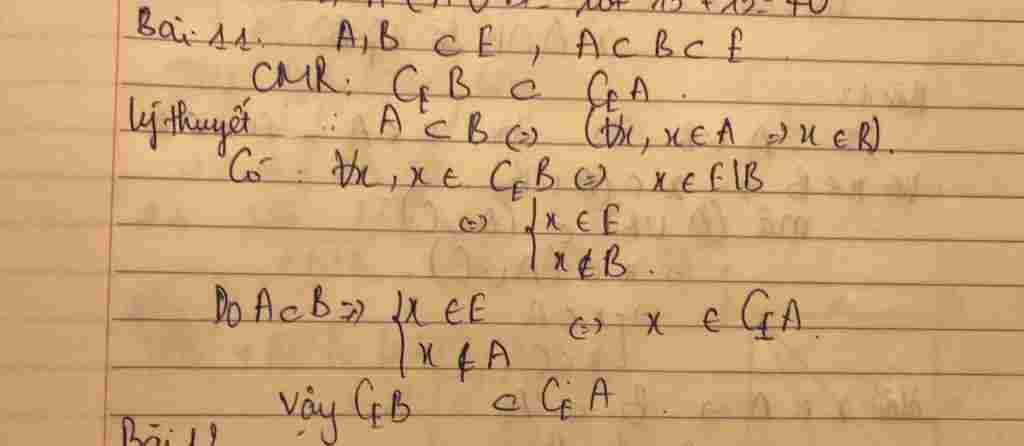 Bài 11. A, B ⊂ E, A ⊂ B ⊂ E
CMR: C_E B ⊂ C_E A.
Lý thuyết : A ⊂ B ⇔ (∀x, x ∈ A ⇒ x ∈ B).
Có : ∀x, x ∈ C_E B ⇔ x ∈ E\B
⇔ { x ∈ E
x ∉ B.
Do A ⊂ B ⇒ { x ∈ E ⇔ x ∈ C_E A.
x ∉ A
Vậy C_E B ⊂ C_E A.
Bài